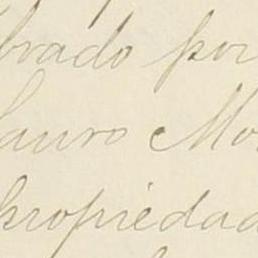 brado por
Lauro Mo
propiedad